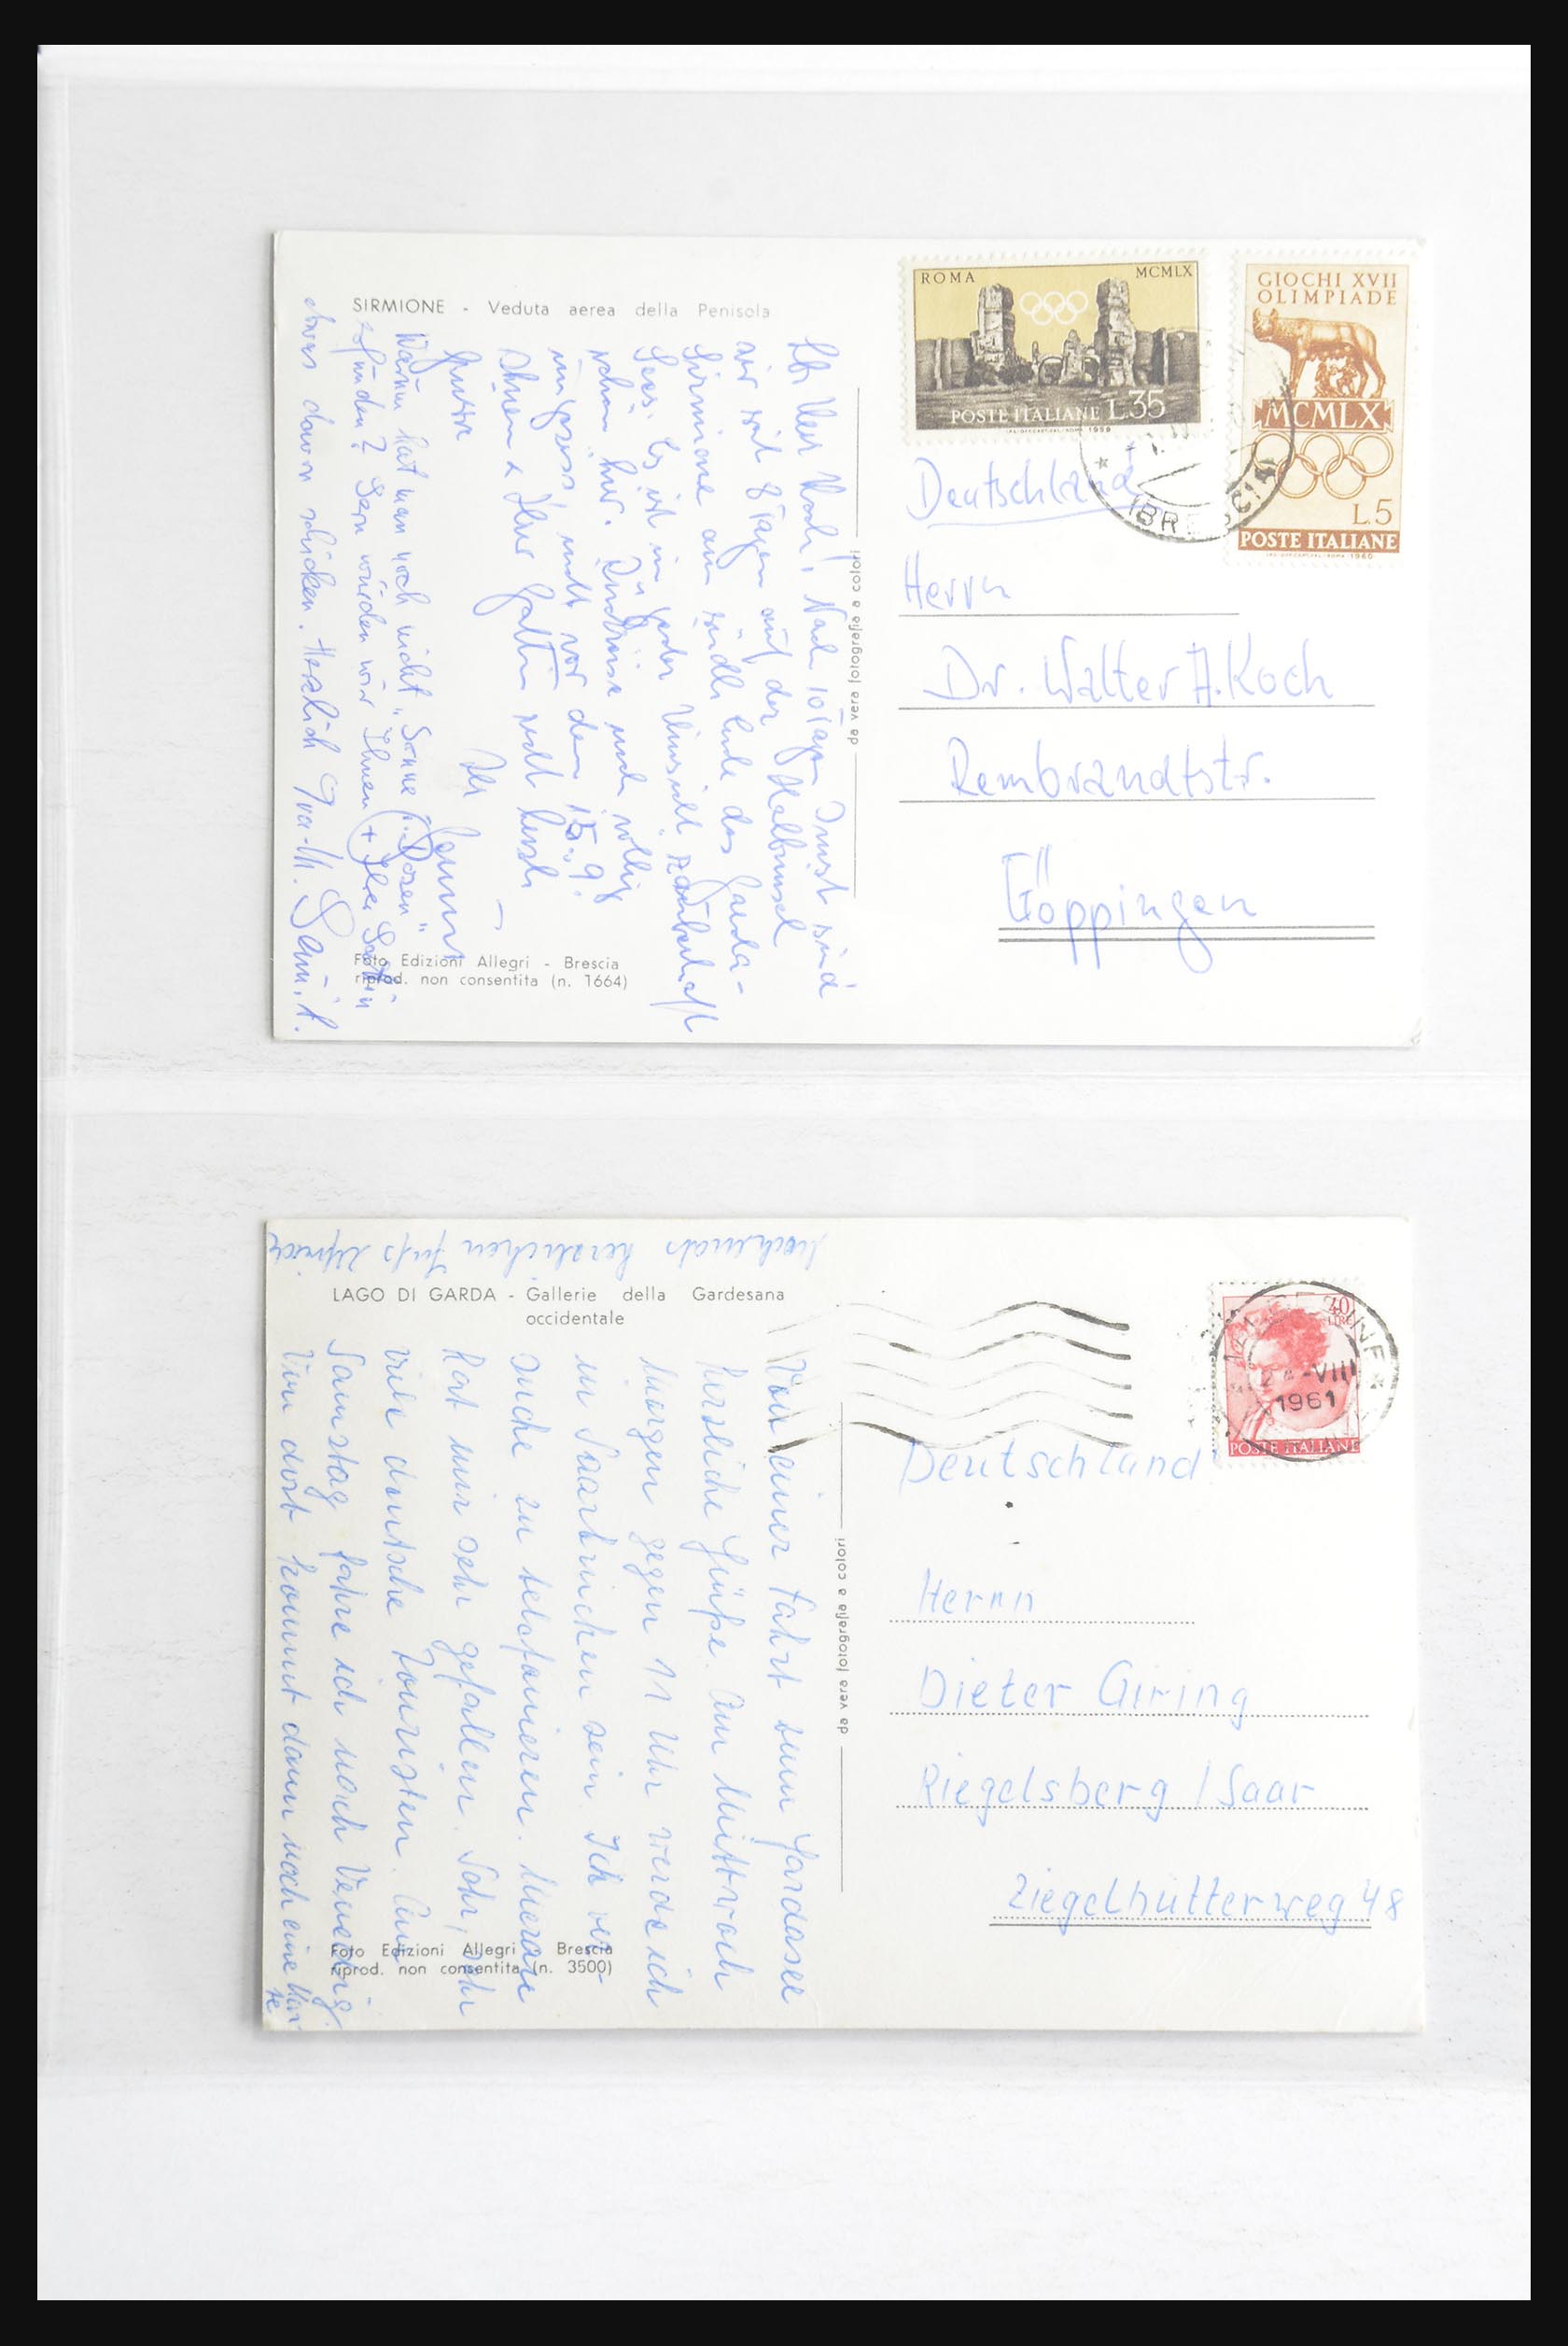 SIRMIONE - Veduta aerea della Penisola
ROMA MCMLX
POSTE ITALIANE L.35
GIOCHI XVII
OLIMPIADE
MCMLX
L.5
POSTE ITALIANE
BRESCIA
Deutschland
Herrn
Dr. Walter A. Koch
Rembrandtstr.
Göppingen
da vera fotografia a colori
Nach 10 Tagen
wir seit 8 Tagen auf der Halbinsel
Sirmione am südl. Ende des Garda-
Sees. Es ist in jeder Hinsicht zauberhaft
schön hier. Rückreise noch völlig
ungewiss, nicht vor dem 15.9.
Ihnen & Ihrer Gattin recht herzl.
Grüsse
Ihr
Warum hat man noch nicht "Sonne i. Dosen"
erfunden? Gern würden wir Ihnen + Ihrer Gattin
etwas davon schicken. Herzlich
Foto Edizioni Allegri - Brescia
riprod. non consentita (n. 1664)
Nochmals herzlichen Gruß
LAGO DI GARDA - Gallerie della Gardesana
occidentale
40
LIRE
VIII
1961
POSTE ITALIANE
Deutschland
Herrn
Dieter Giring
Riegelsberg / Saar
Ziegelhütterweg 48
da vera fotografia a colori
Von einer Fahrt zum Gardasee
herzliche Grüße. Am Mittwoch
Morgen gegen 11 Uhr werde ich
in Saarbrücken sein. Ich ver-
suche zu telefonieren. Meran
hat mir sehr gefallen. Sehr, sehr
viele deutsche Touristen. Am
Samstag fahre ich nach Venedig.
Von dort kommt dann noch eine Kar-
te
Foto Edizioni Allegri - Brescia
riprod. non consentita (n. 3500)